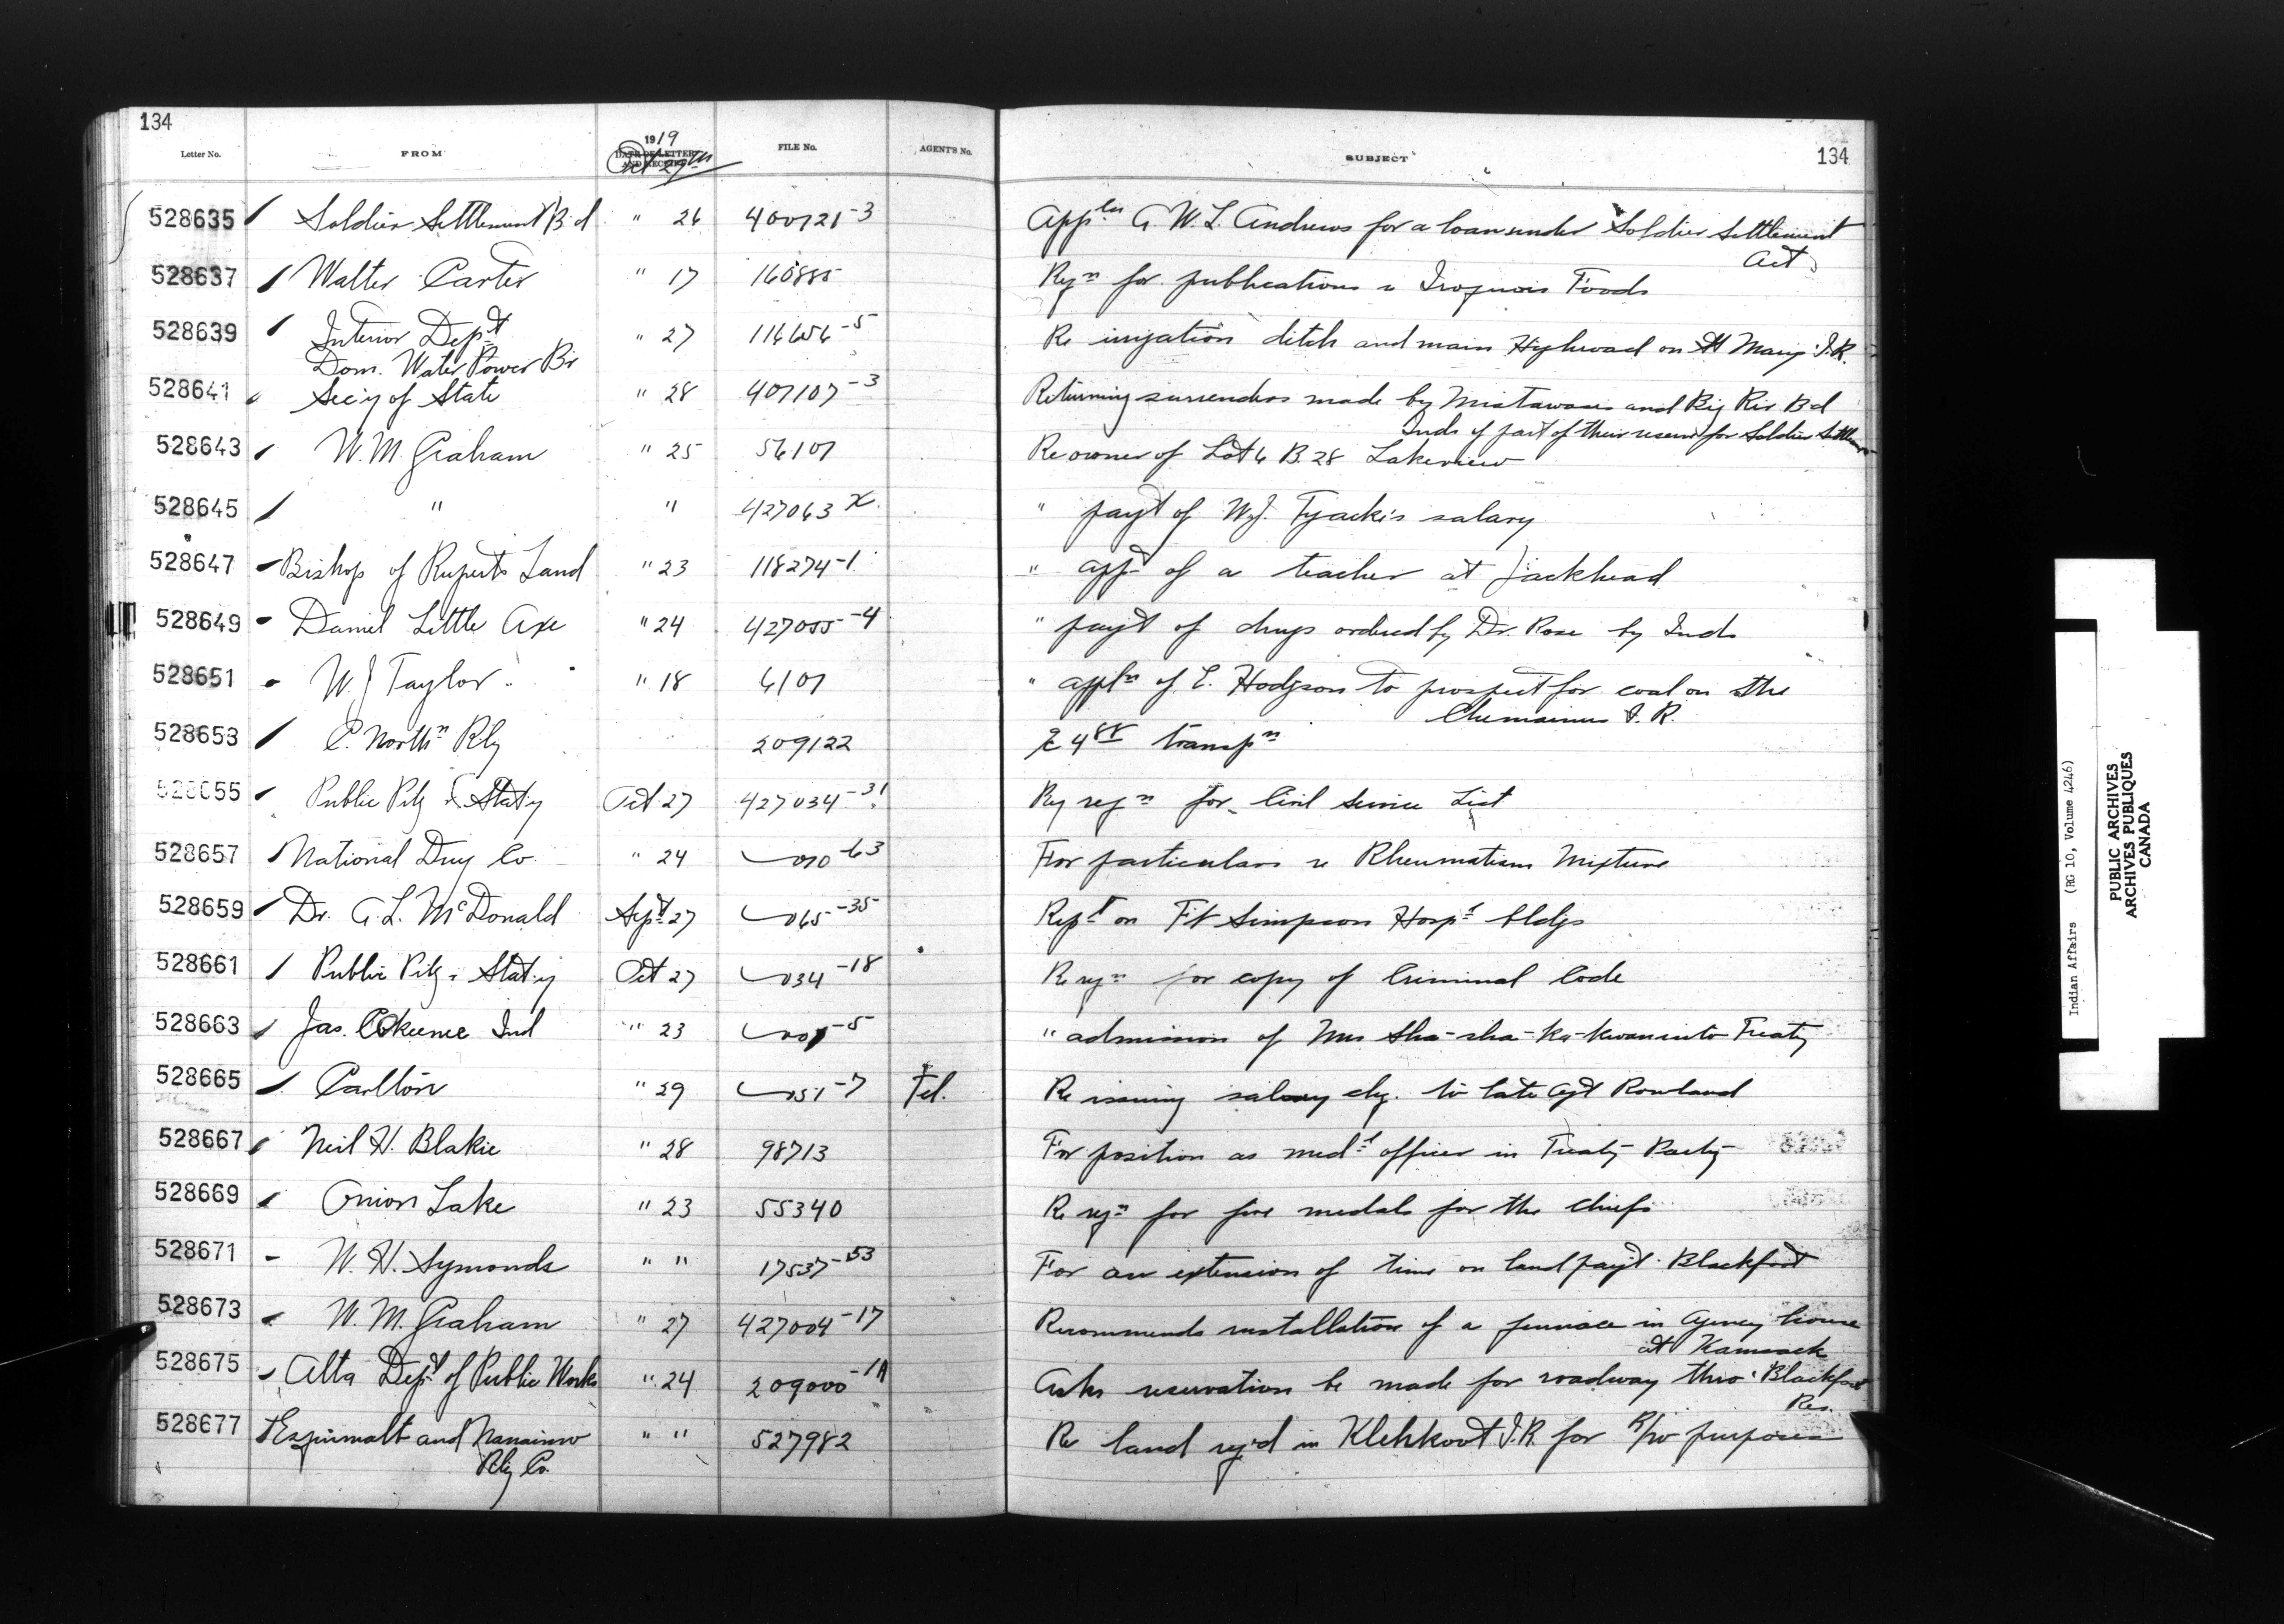 134
1919
Letter No. FROM DATE OF LETTER AND RECEIPT FILE No. AGENT'S No. SUBJECT 134
Oct 29th
528635 Soldier Settlement Bd " 26 400721-3 Appln G. W. L. Andrews for a loan under Soldier Settlement
Act
528637 Walter Carter " 17 160885 Reqn for publications re Iroquois Foods
528639 Interior Dept " 27 116656-5 Re irrigation ditch and main Highroad on St Marys I.R.
Dom. Water Power Br
528641 Sec'y of State " 28 407107-3 Returning surrenders made by Mistawasis and Big Riv. Bd
Inds of part of their reserve for Soldier Settlem
528643 W. M. Graham " 25 56107 Re owner of Lot 6 B. 28 Lakeview
528645 " " 427063 X " payt of W.J. Tyacki's salary
528647 Bishop of Ruperts Land " 23 118274-1 " appt of a teacher at Jackhead
528649 Daniel Little Axe " 24 427055-4 " payt of drugs ordered by Dr. Rose by Inds
528651 W J Taylor " 18 6107 " appln of E. Hodgson to prospect for coal on the
Chemainus I. R.
528653 C. Northn Rly 209122 4 88 transpn
528655 Public Ptg & Stat'y Oct 27 427034-31 Re reqn for Civil Service List
528657 National Drug Co. " 24 010-63 For particulars re Rheumatism Mixture
528659 Dr. A. L. McDonald Sept 27 065-35 Rept on Ft Simpson Hospl bldgs
528661 Public Ptg & Stat'y Oct 27 034-18 Re reqn for copy of Criminal Code
528663 Jas. Ind " 23 -5 " admission of Mrs Sha-sha-ka-kwan into Treaty
528665 Carlton " 29 051-7 Tel. Re issuing salary chq. to late Agt Rowland
528667 Neil H. Blakie " 28 98713 For position as medl officer in Treaty Party
528669 Onion Lake " 23 55340 Re reqn for five medals for the chiefs
528671 W. H. Symonds " " 17537-53 For an extension of time on land payt. Blackfoot
528673 W. M. Graham " 27 427004-17 Recommends installation of a furnace in Agency house
at Kamsack
528675 Alta Dept of Public Works " 24 209000-1A Asks reservation be made for roadway thro' Blackfoot
Res.
528677 Esquimalt and Nanaimo " " 527982 Re land req'd in Klehkoot I.R. for R/w purposes
Rly Co.
Indian Affairs (RG 10, Volume 4246)
PUBLIC ARCHIVES
ARCHIVES PUBLIQUES
CANADA